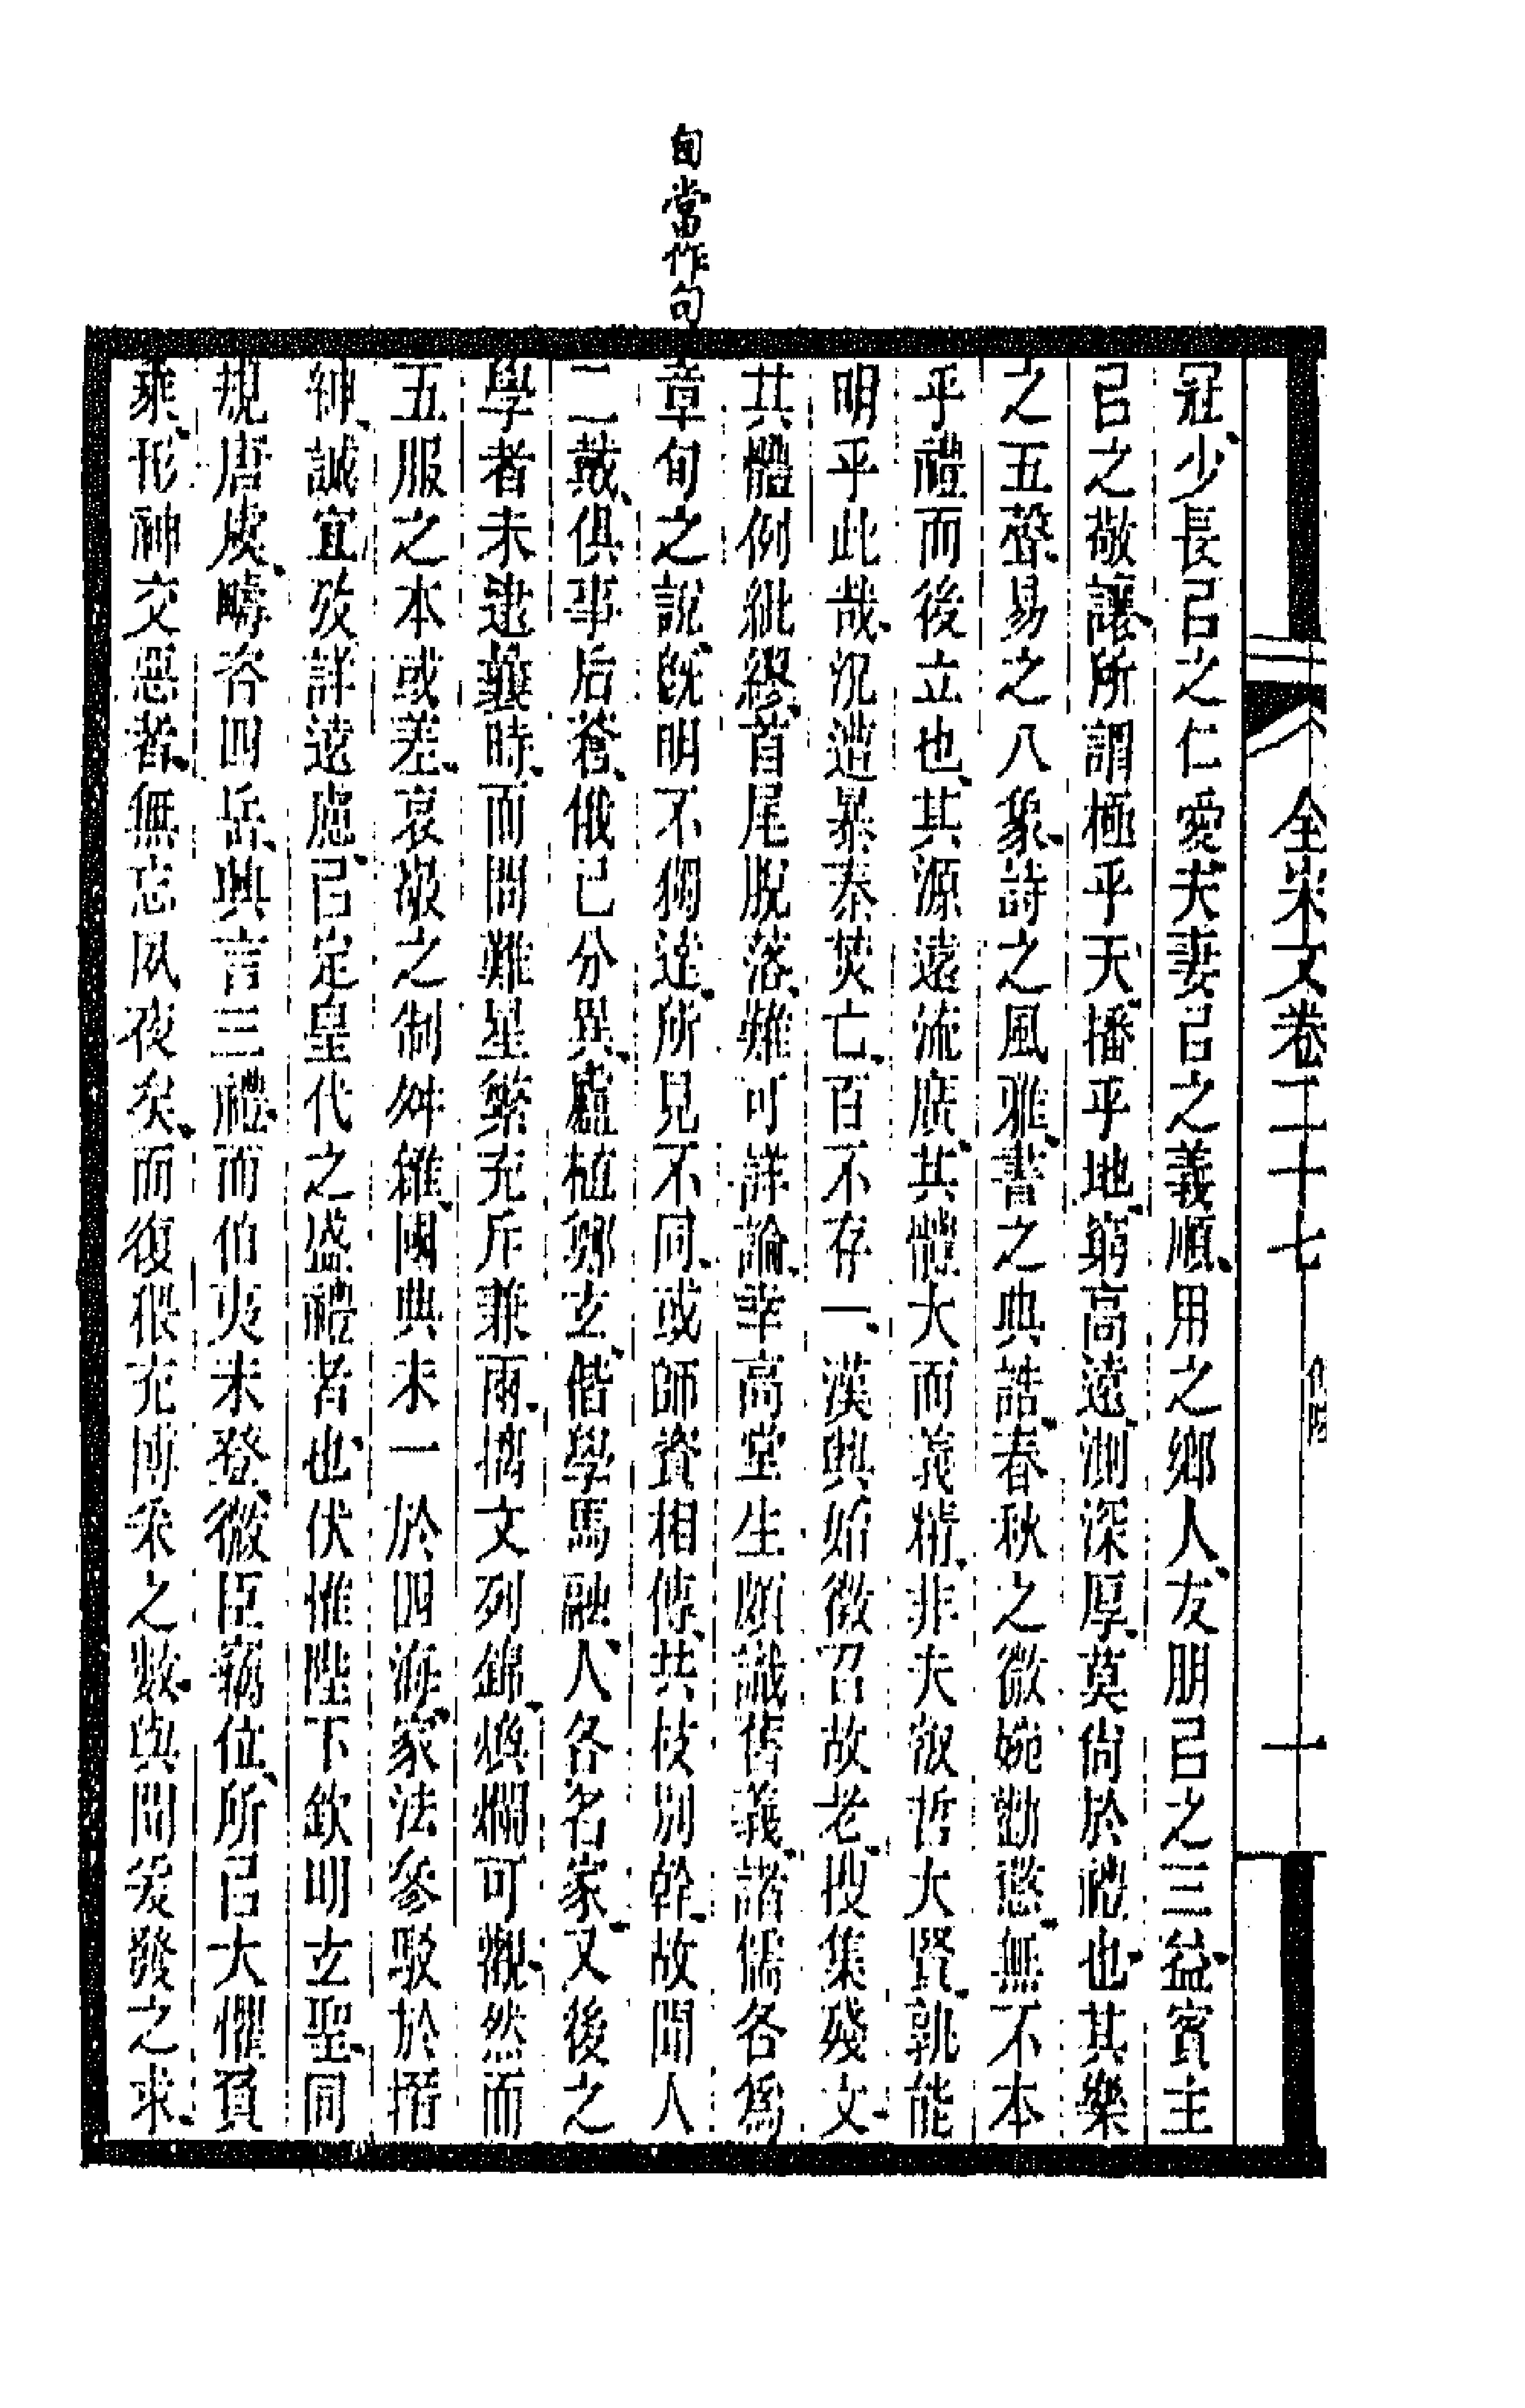 旬當作句
全宋文卷二十七 傅隆 十
冠少長㠯之仁愛夫妻㠯之義順用之鄉人友朋㠯之三益賓主
㠯之敬讓所謂極乎天播乎地窮高遠測深厚莫尚於禮也其樂
之五聲易之八象詩之風雅書之典誥春秋之微婉勸懲無不本
乎禮而後立也其源遠流廣其體大而義精非夫叡哲大賢孰能
明乎此哉況遭暴秦焚亡百不存一漢興始徵召故老搜集殘文
其體例紕繆首尾脫落難可詳論幸高堂生頗識舊義諸儒各爲
章旬之說旣明不獨達所見不同或師資相傳共枝別幹故聞人
二戴俱事后蒼俄已分異盧植鄭玄偕學馬融人各名家又後之
學者未逮曩時而問難星繁充斥兼兩摛文列錦煥爛可觀然而
五服之本或差哀敬之制舛雜國典未一於四海家法參駮於搢
紳誠宜攷詳遠慮㠯定皇代之盛禮者也伏惟陛下欽明玄聖同
規唐虞疇咨四岳興言三禮而伯夷未登微臣竊位所㠯大懼負
乘形神交惡者無忘夙夜矣而復猥充博采之數與聞爰發之求